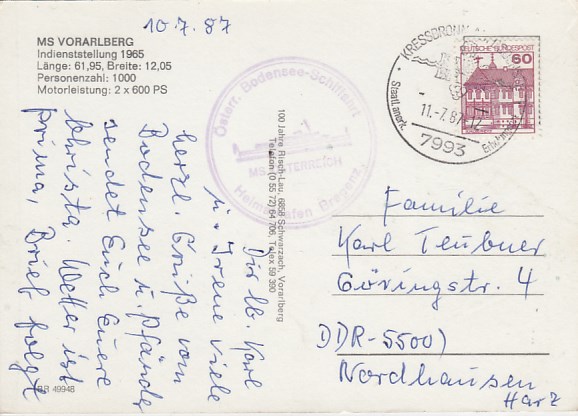 10.7.87
MS VORARLBERG
Indienststellung 1965
Länge: 61,95, Breite: 12,05
Personenzahl: 1000
Motorleistung: 2 x 600 PS
Österr. Bodensee-Schiffahrt
MS ÖSTERREICH
Heimathafen Bregenz
KRESSBRONN AM
Staatl. anerk.
11.-7.87
7993
Erholungsort
DEUTSCHE BUNDESPOST
60
100 Jahre Risch-Lau, 6858 Schwarzach, Vorarlberg
Telefon (0 55 72) 84 706, Telex 59 380
Dir lb. Karl
u. Irene viele
herzl. Grüße vom
Bodensee u. Pfänder
sendet Euch Eure
Christa. Wetter ist
prima, Brief folgt
BR 49946
Familie
Karl Teubner
Göringstr. 4
DDR-5500)
Nordhausen
Harz